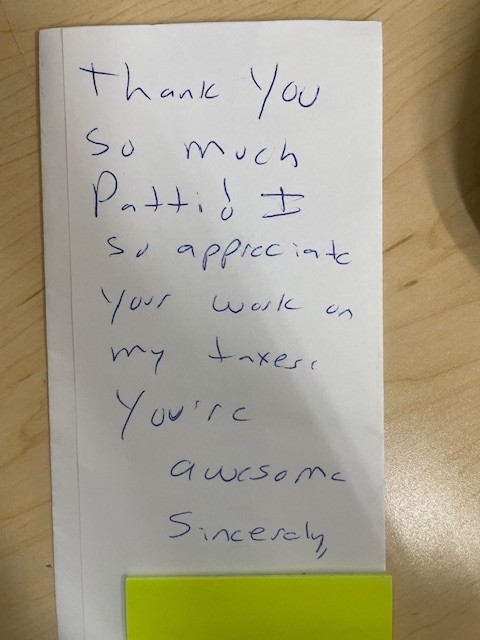 Thank You
So much
Patti! I
So appreciate
Your work on
my taxes.
You're
awesome
Sincerely,